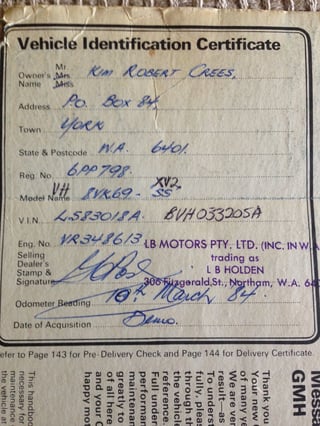 Vehicle Identification Certificate
Mr.
Owner's Mrs. KIM ROBERT CREES,
Name Miss
Address P.O. BOX 84,
Town YORK
State & Postcode W.A. 6401.
Reg. No. 6PP798. XV2
Model Name VH 8VK69. SS
V.I.N. L583018A. BVH033205A
Eng. No. VR348613 LB MOTORS PTY. LTD. (INC. IN W.A
Selling trading as
Dealer's L B HOLDEN
Stamp &
Signature 306 Fitzgerald St., Northam, W.A. 64
Odometer Reading 10th March 84.
Date of Acqusition Demo.
efer to Page 143 for Pre-Delivery Check and Page 144 for Delivery Certificate.
This handbo
necessary for
maintenance
the vehicle at
reference.
the vehicle
through th
fully, pleas
To unders
result—as
We are ver
of many ye
Your new
Thank you
GMH
Messa